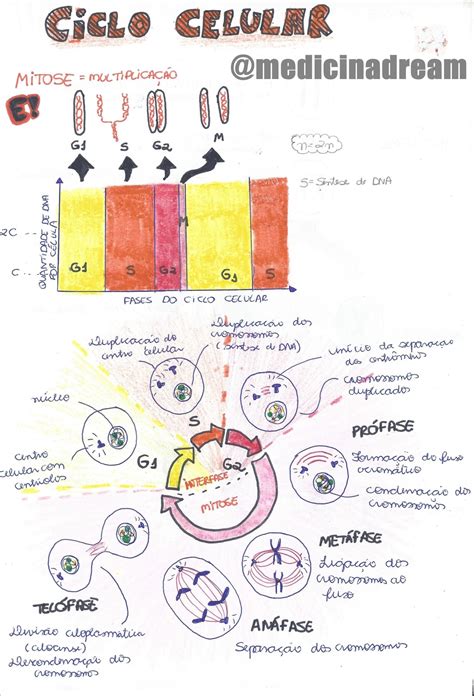 CICLO CELULAR
@medicinadream
MITOSE = MULTIPLICAÇÃO
E!
G1 S G2 M
n=2n
S=Síntese de DNA
QUANTIDADE DE DNA
POR CÉLULA
2C
C
G1 S G2 M G1 S
FASES DO CICLO CELULAR
Duplicação do
centro celular
Duplicação dos
cromossomos
(Síntese de DNA)
início da separação
dos centrômeros
cromossomos
duplicados
núcleo
centro
celular com
centríolos
G1
S
G2
INTERFASE
MITOSE
PRÓFASE
Formação do fuso
acromático
Condensação dos
cromossomos
METÁFASE
Ligação dos
cromossomos ao
fuso
ANÁFASE
Separação dos cromossomos
TELÓFASE
Divisão citoplasmática
Descondensação dos
cromossomos